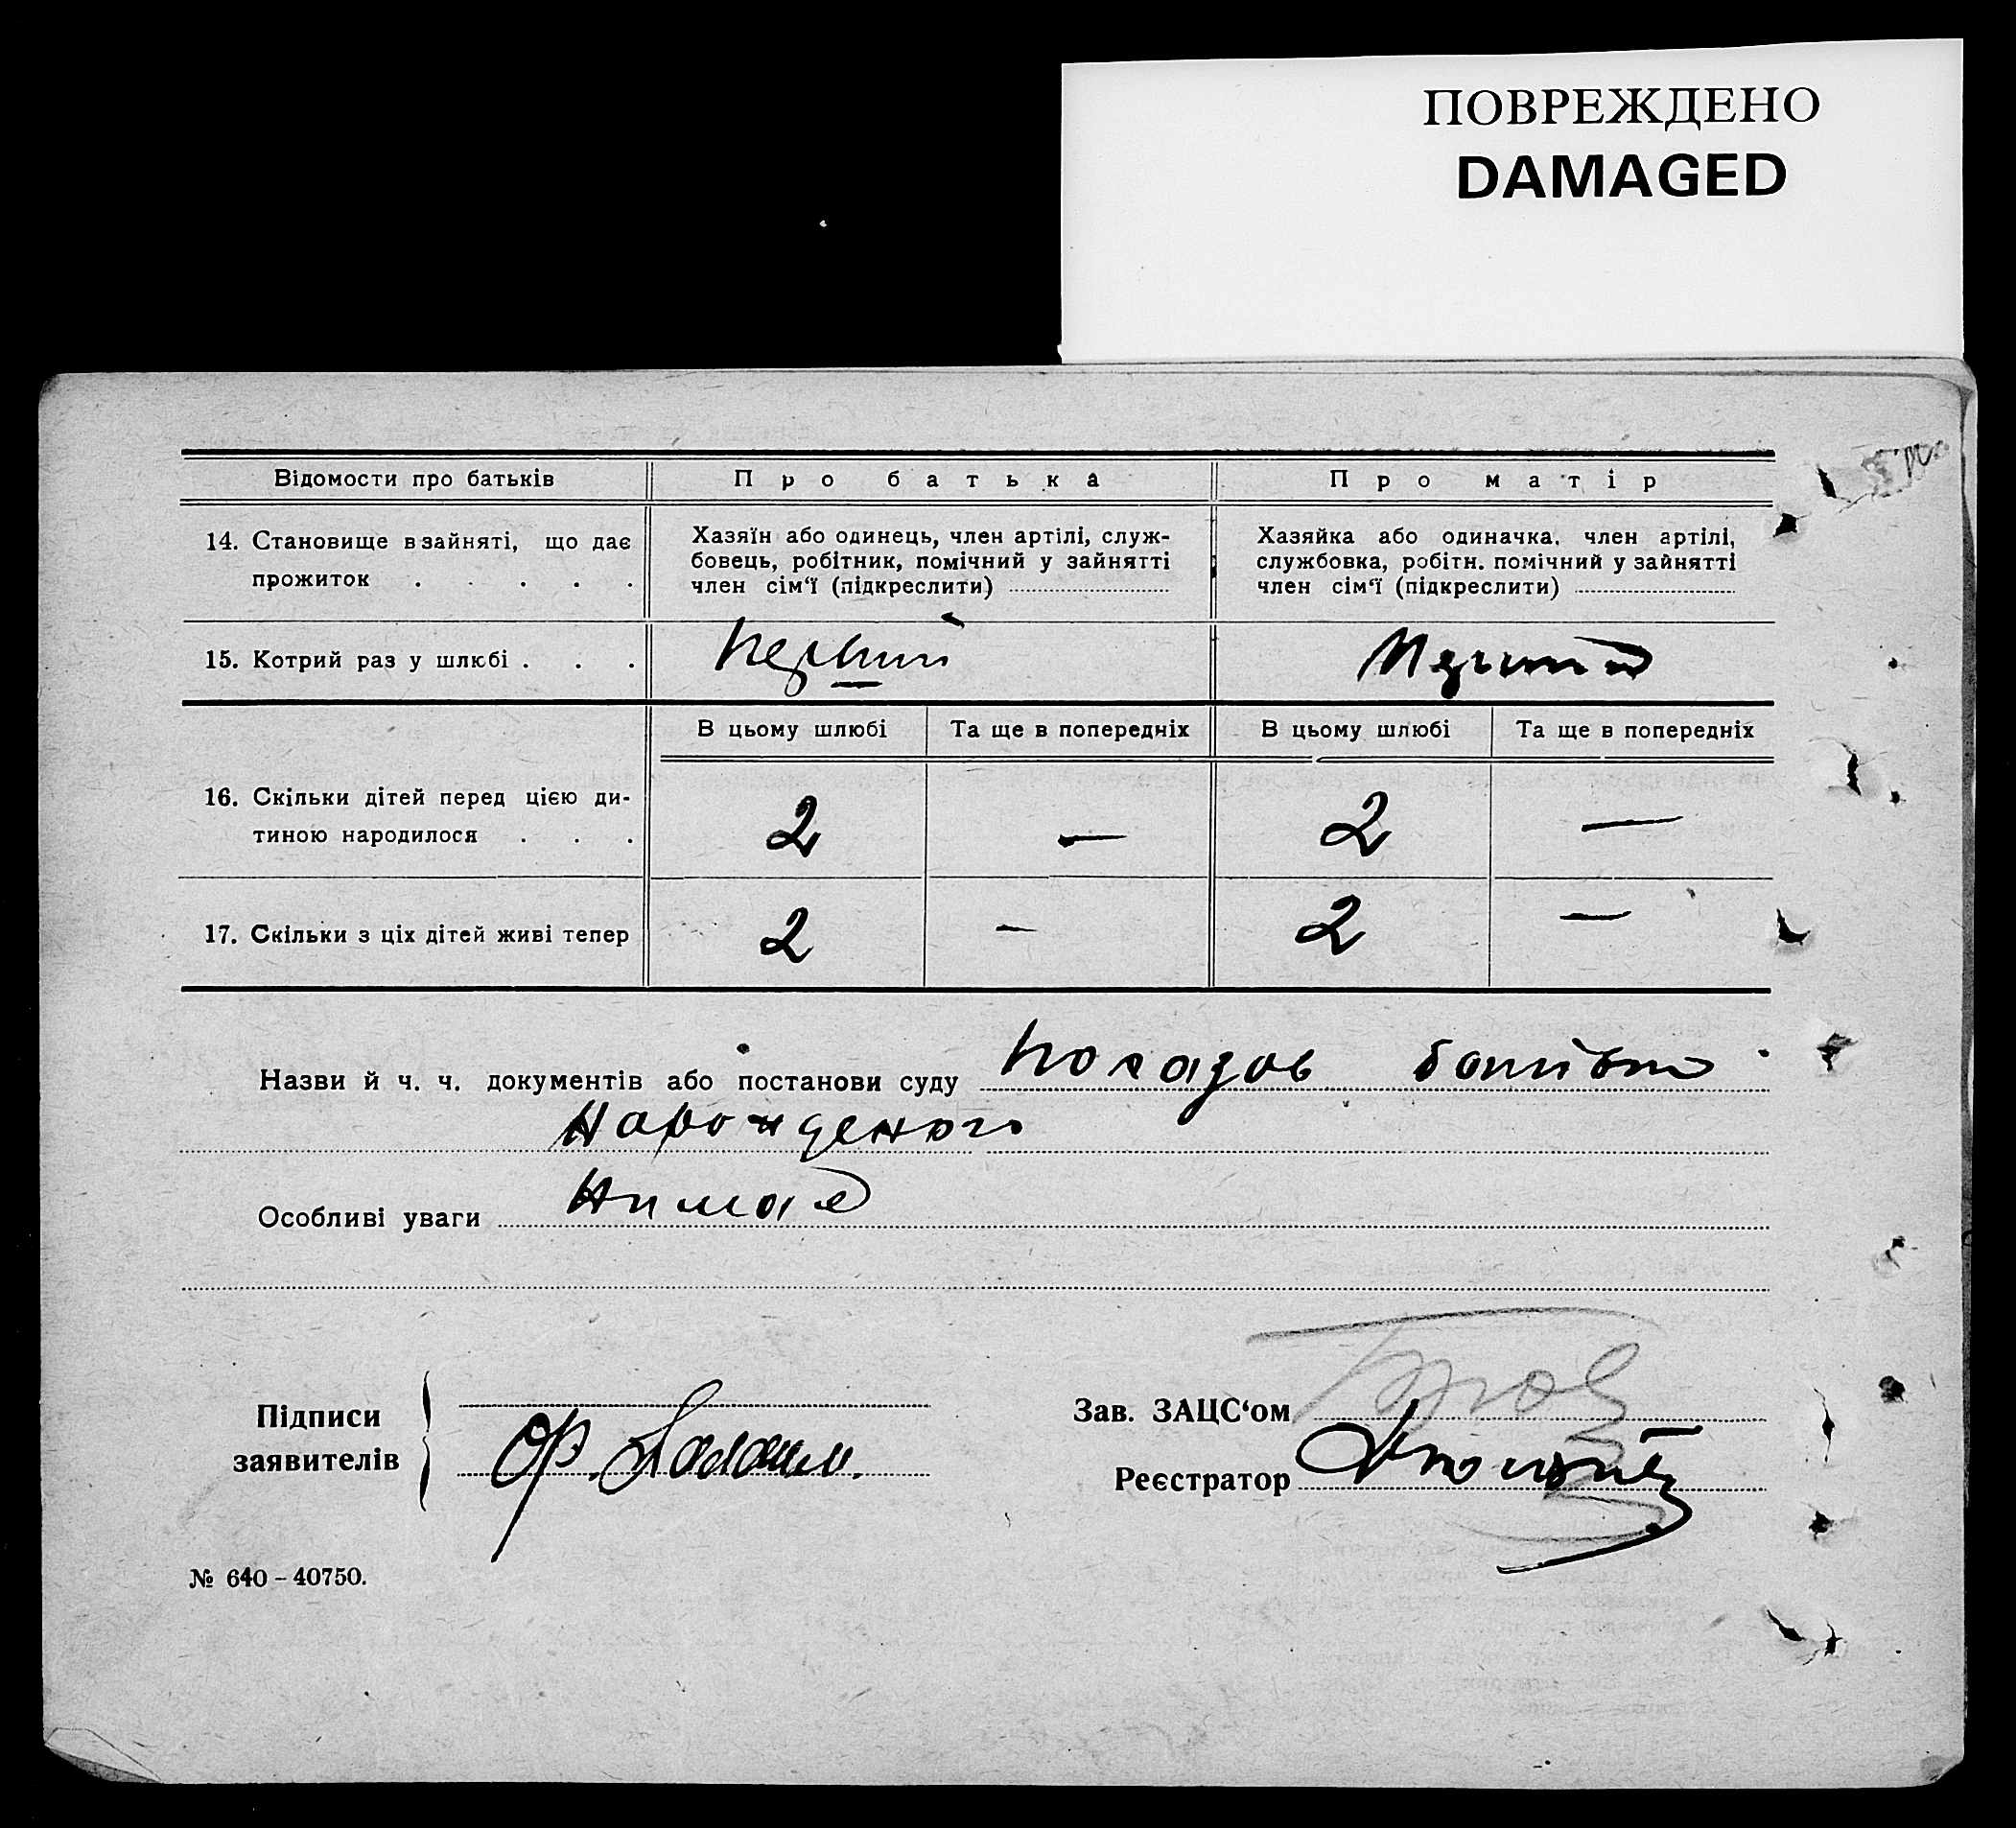 ПОВРЕЖДЕНО
DAMAGED
Відомости про батьків Про батька Про матір
14. Становище в зайняті, що дає прожиток . . . . .
Хазяїн або одинець, член артілі, служ-
бовець, робітник, помічний у зайнятті
член сім‘ї (підкреслити)
Хазяйка або одиначка, член артілі,
службовка, робітн. помічний у зайнятті
член сім‘ї (підкреслити)
15. Котрий раз у шлюбі . . . Перший Перший
В цьому шлюбі Та ще в попередніх В цьому шлюбі Та ще в попередніх
16. Скільки дітей перед цією ди-
тиною народилося . . . 2 — 2 —
17. Скільки з ціх дітей живі тепер 2 — 2 —
Назви й ч. ч. документів або постанови суду Показов батька
Народженого
Особливі уваги Нимає
Підписи
заявителів
Зав. ЗАЦС‘ом
Реєстратор
№ 640 – 40750.